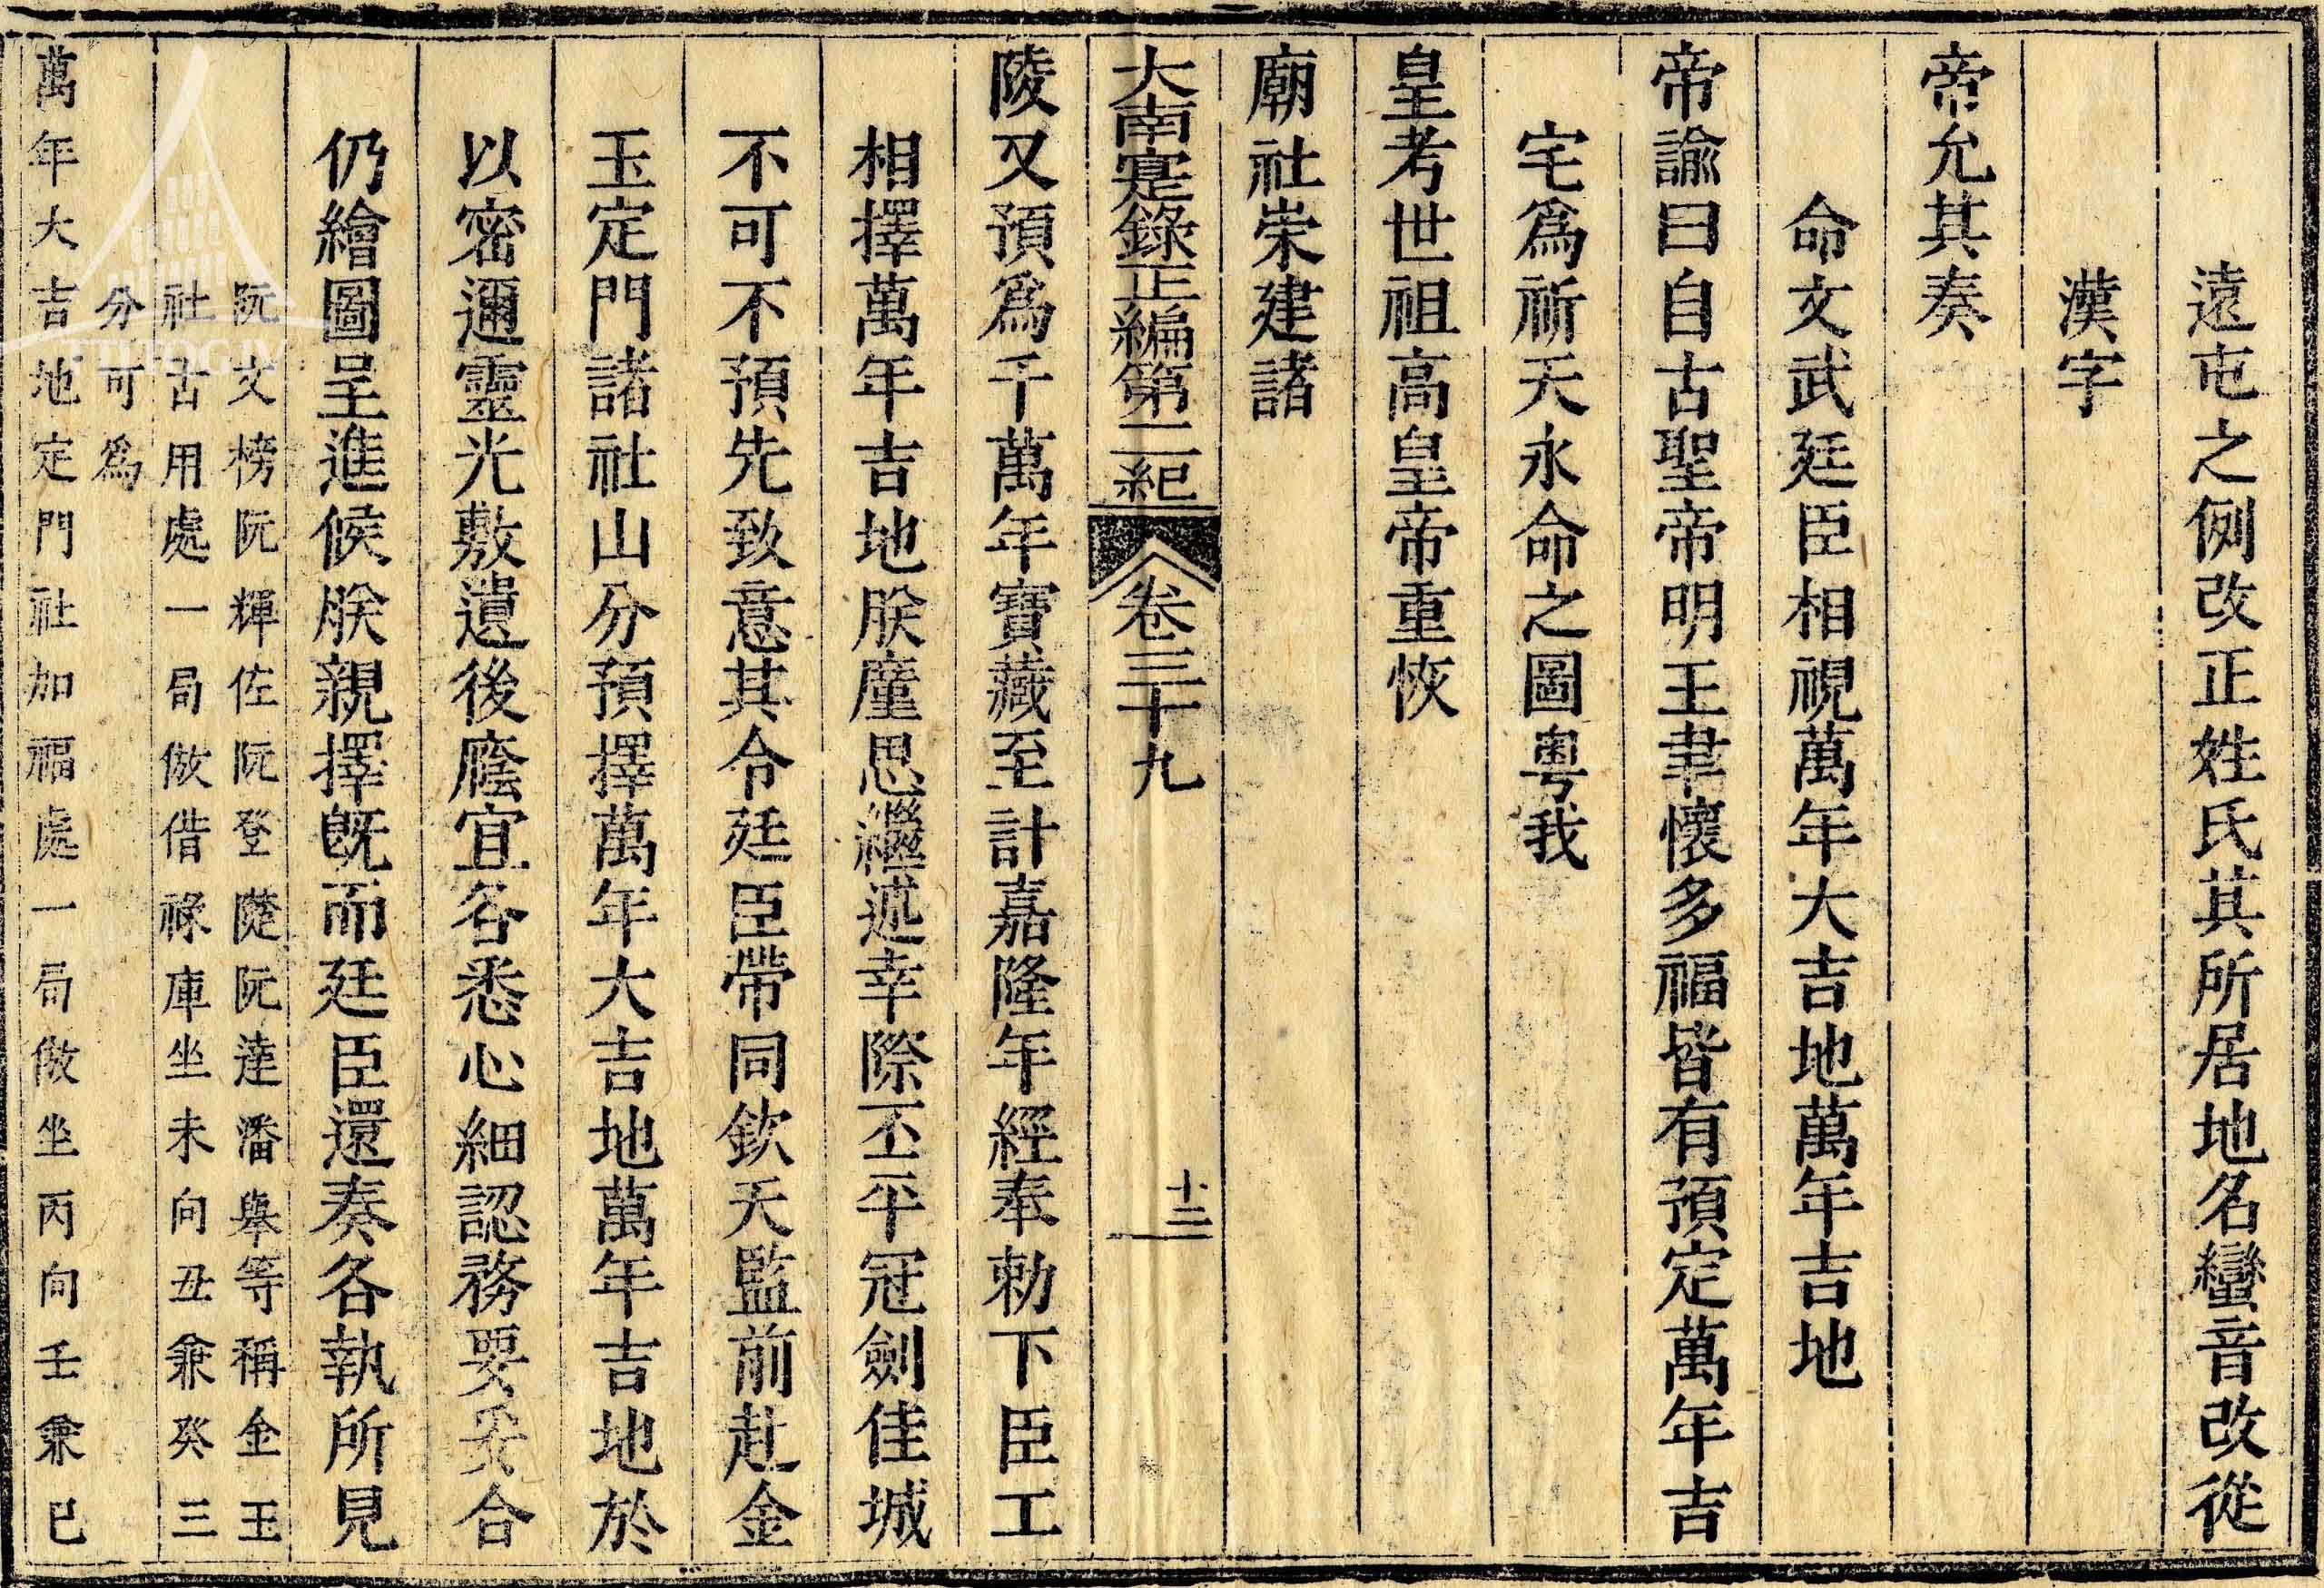 遠屯之例改正姓氏其所居地名蠻音改從
漢字
帝允其奏
命文武廷臣相視萬年大吉地萬年吉地
帝諭曰自古聖帝明王聿懷多福皆有預定萬年吉
宅爲祈天永命之圖粤我
皇考世祖高皇帝重恢
廟社崇建諸
大南寔錄正編第二紀 卷三十九 十三
陵又預爲千萬年寶藏至計嘉隆年經奉勅下臣工
相擇萬年吉地朕廑思繼述幸際丕平冠劍佳城
不可不預先致意其令廷臣帶同欽天監前赴金
玉定門諸社山分預擇萬年大吉地萬年吉地於
以密邇靈光敷遺後廕宜各悉心細認務要妥合
仍繪圖呈進候朕親擇旣而廷臣還奏各執所見
阮文榜阮輝佐阮登 阮達潘舉等稱金玉
社古用處一局倣借祿庫坐未向丑兼癸三
分可爲
萬年大吉地定門社加福處一局倣坐丙向壬兼巳